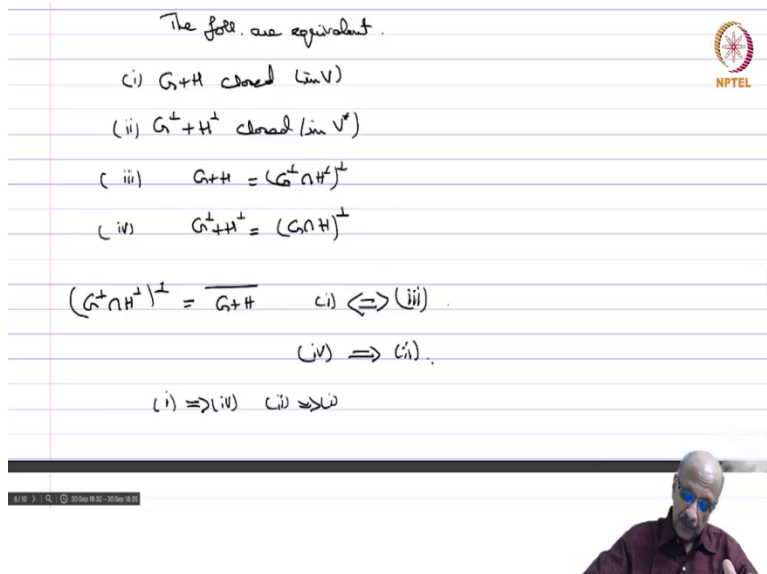 The foll. are equivalent.
NPTEL
(i) G+H closed (in V)
(ii) G^⊥ + H^⊥ closed (in V*)
(iii) G+H = (G^⊥ ∩ H^⊥)^⊥
(iv) G^⊥ + H^⊥ = (G∩H)^⊥
(G^⊥ ∩ H^⊥)^⊥ = \overline{G+H} (i) <=> (iii).
(iv) => (ii).
(i) => (iv) (ii) => (i)
6/10 30 Sep 18:32 - 30 Sep 18:35